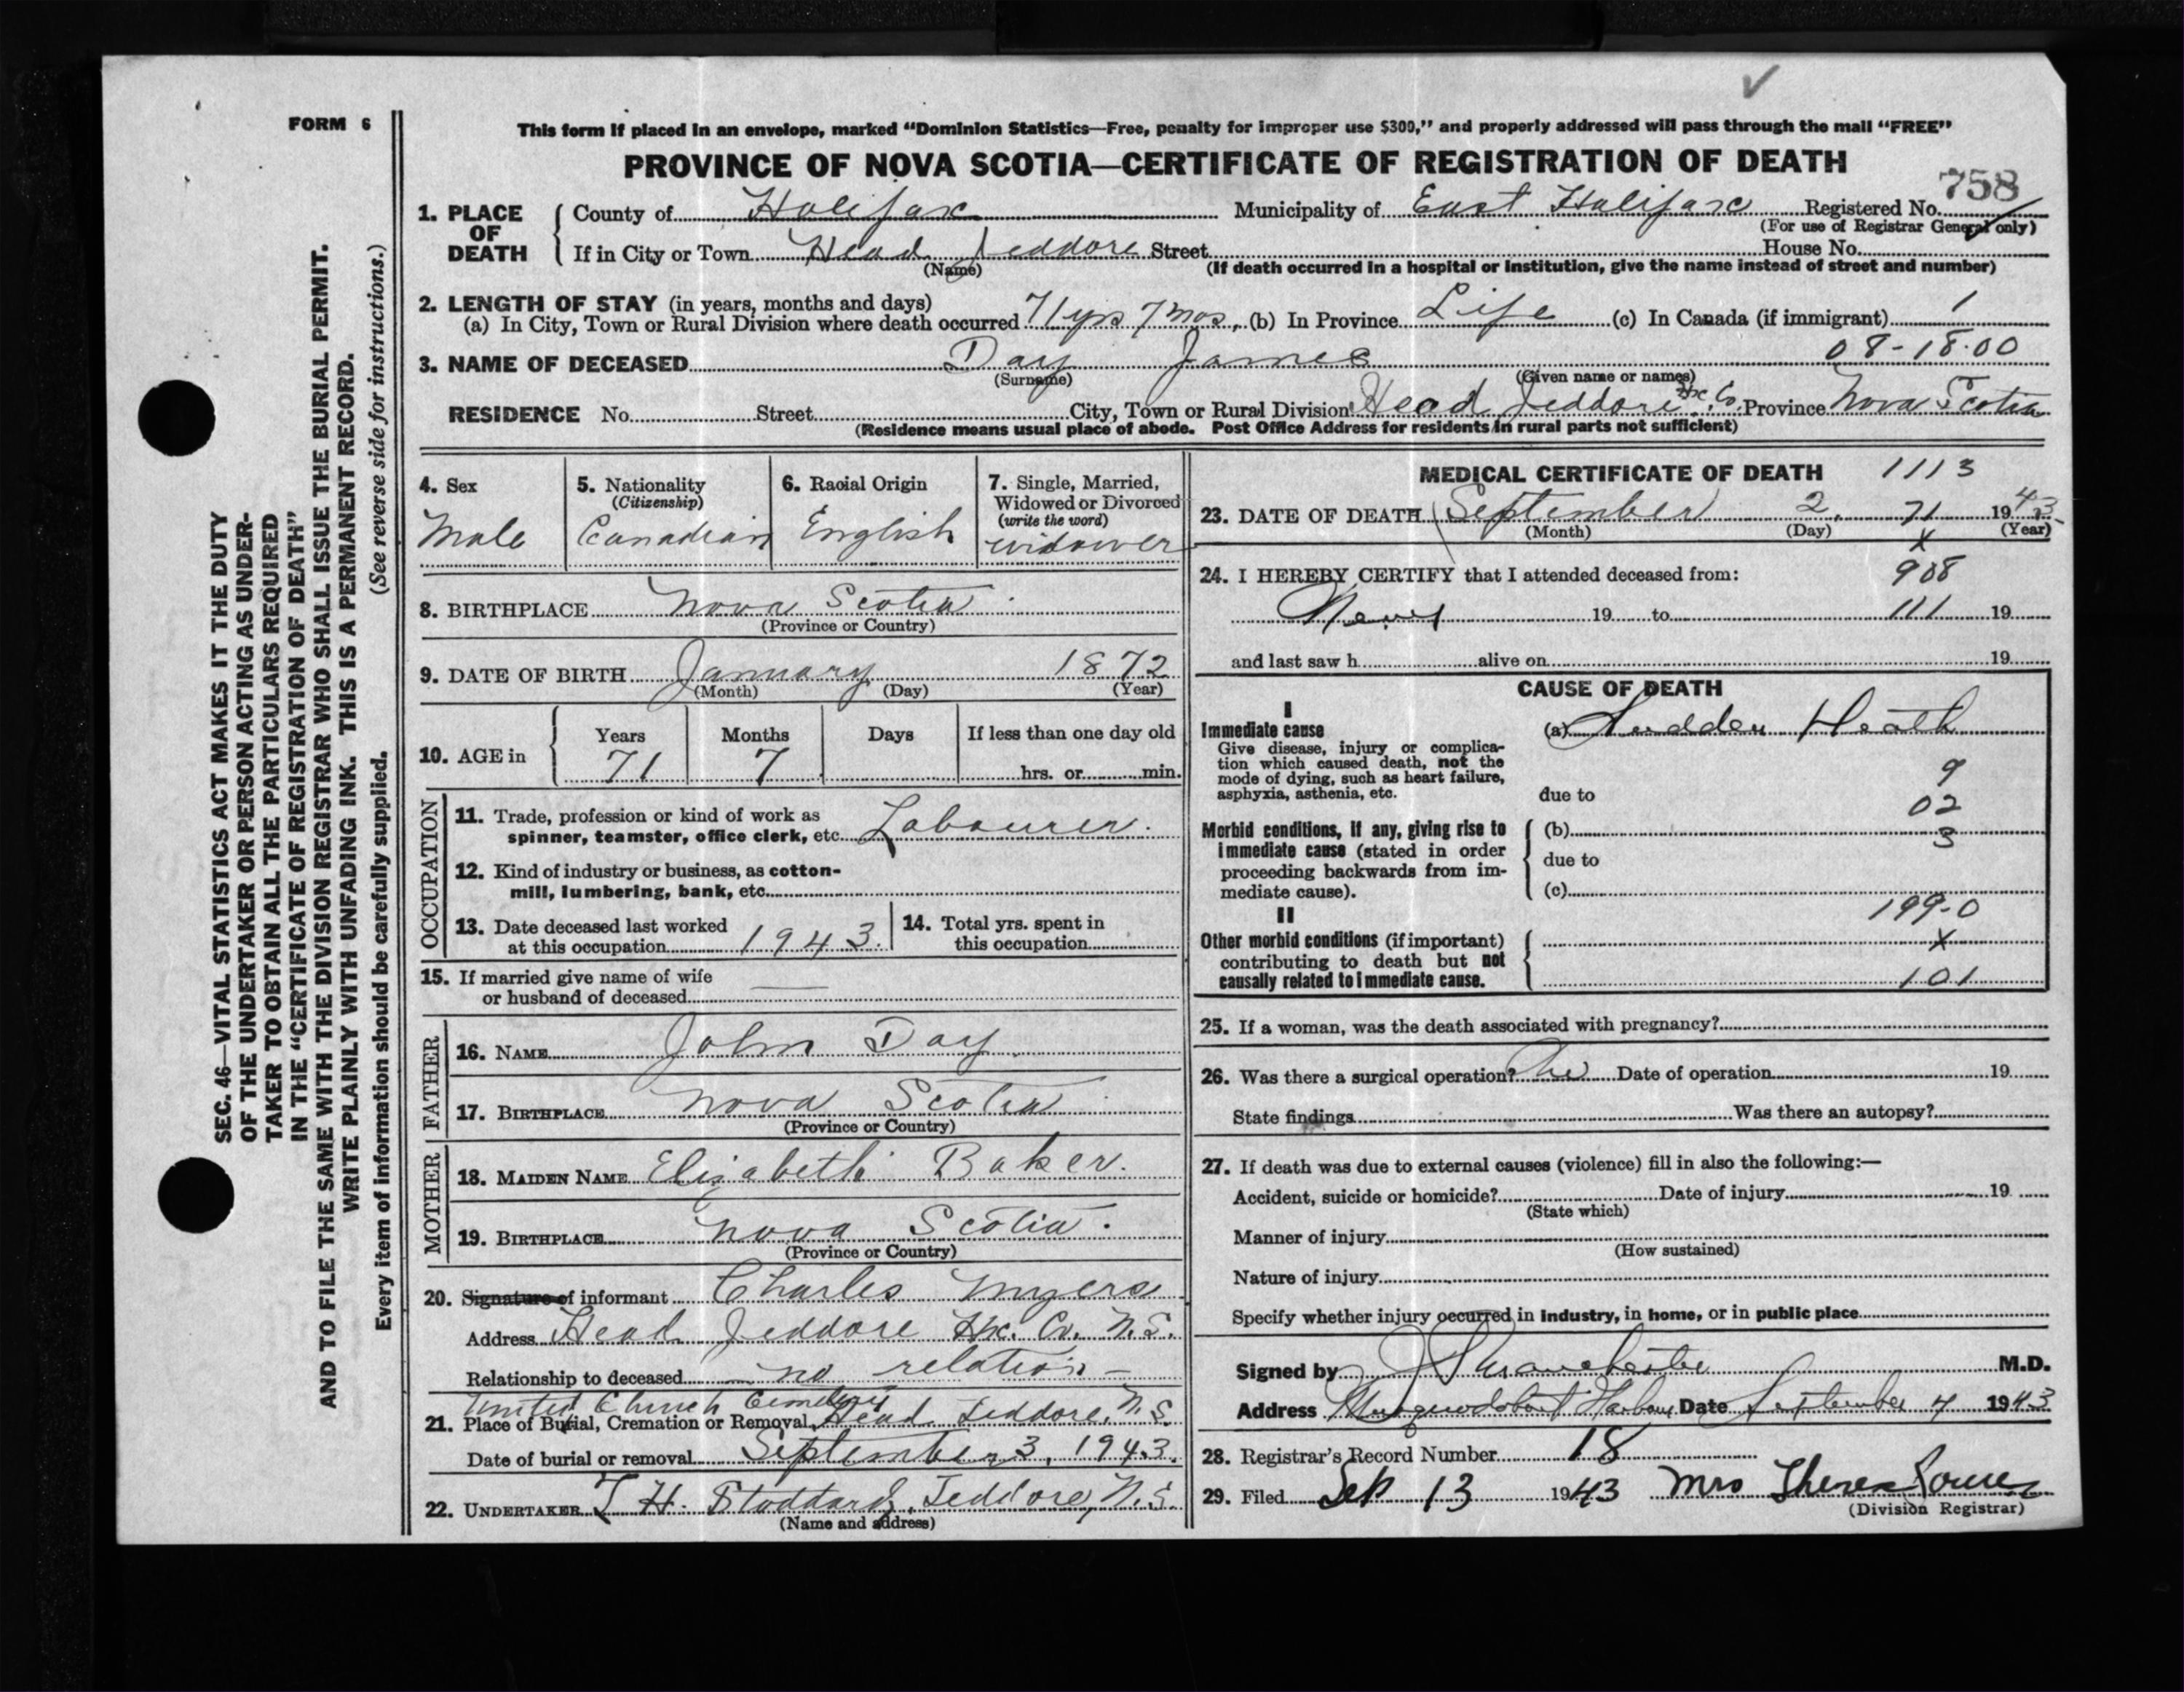 FORM 6
This form if placed in an envelope, marked "Dominion Statistics—Free, penalty for improper use $300," and properly addressed will pass through the mail "FREE"
PROVINCE OF NOVA SCOTIA—CERTIFICATE OF REGISTRATION OF DEATH
758
1. PLACE OF DEATH { County of Halifax Municipality of East Halifax Registered No.
(For use of Registrar General only)
If in City or Town Head Jeddore Street House No.
(Name) (If death occurred in a hospital or institution, give the name instead of street and number)
2. LENGTH OF STAY (in years, months and days)
(a) In City, Town or Rural Division where death occurred 71 yrs 7 mos. (b) In Province Life (c) In Canada (if immigrant) 1
08-18-00
3. NAME OF DECEASED Day James
(Surname) (Given name or names)
RESIDENCE No. Street City, Town or Rural Division Head Jeddore Hx. Co. Province Nova Scotia
(Residence means usual place of abode. Post Office Address for residents in rural parts not sufficient)
4. Sex
Male
5. Nationality
(Citizenship)
Canadian
6. Racial Origin
English
7. Single, Married,
Widowed or Divorced
(write the word)
widower
8. BIRTHPLACE Nova Scotia
(Province or Country)
9. DATE OF BIRTH January 1872
(Month) (Day) (Year)
10. AGE in { Years Months Days If less than one day old
71 7 hrs. or min.
OCCUPATION
11. Trade, profession or kind of work as
spinner, teamster, office clerk, etc. Labourer.
12. Kind of industry or business, as cotton-
mill, lumbering, bank, etc.
13. Date deceased last worked
at this occupation 1943.
14. Total yrs. spent in
this occupation
15. If married give name of wife
or husband of deceased ——
FATHER
16. NAME John Day
17. BIRTHPLACE Nova Scotia
(Province or Country)
MOTHER
18. MAIDEN NAME Elizabeth Baker.
19. BIRTHPLACE Nova Scotia.
(Province or Country)
20. Signature of informant Charles Myers
Address Head Jeddore Hx. Co. N.S.
Relationship to deceased — no relation —
United Church Cemetery
21. Place of Burial, Cremation or Removal Head Jeddore, N.S.
Date of burial or removal September 3, 1943.
22. UNDERTAKER T. H. Stoddard, Jeddore, N.S.
(Name and address)
MEDICAL CERTIFICATE OF DEATH 1113
23. DATE OF DEATH September 2, 71 1943
(Month) (Day) (Year)
X
24. I HEREBY CERTIFY that I attended deceased from: 908
19 to 111 19
and last saw h alive on 19
CAUSE OF DEATH
I
Immediate cause
Give disease, injury or complica-
tion which caused death, not the
mode of dying, such as heart failure,
asphyxia, asthenia, etc.
(a) Sudden Death
9
due to
02
Morbid conditions, if any, giving rise to
immediate cause (stated in order
proceeding backwards from im-
mediate cause).
(b)
3
due to
(c)
199-0
II
Other morbid conditions (if important)
contributing to death but not
causally related to immediate cause.
X
101
25. If a woman, was the death associated with pregnancy?
26. Was there a surgical operation? No Date of operation 19
State findings Was there an autopsy?
27. If death was due to external causes (violence) fill in also the following:—
Accident, suicide or homicide? Date of injury 19
(State which)
Manner of injury
(How sustained)
Nature of injury
Specify whether injury occurred in industry, in home, or in public place
Signed by M.D.
Address Musquodoboit Harbour Date September 4 1943
28. Registrar's Record Number 18
29. Filed Sep 13 1943 Mrs
(Division Registrar)
SEC. 46—VITAL STATISTICS ACT MAKES IT THE DUTY
OF THE UNDERTAKER OR PERSON ACTING AS UNDER-
TAKER TO OBTAIN ALL THE PARTICULARS REQUIRED
IN THE "CERTIFICATE OF REGISTRATION OF DEATH"
AND TO FILE THE SAME WITH THE DIVISION REGISTRAR WHO SHALL ISSUE THE BURIAL PERMIT.
WRITE PLAINLY WITH UNFADING INK. THIS IS A PERMANENT RECORD.
Every item of information should be carefully supplied. (See reverse side for instructions.)